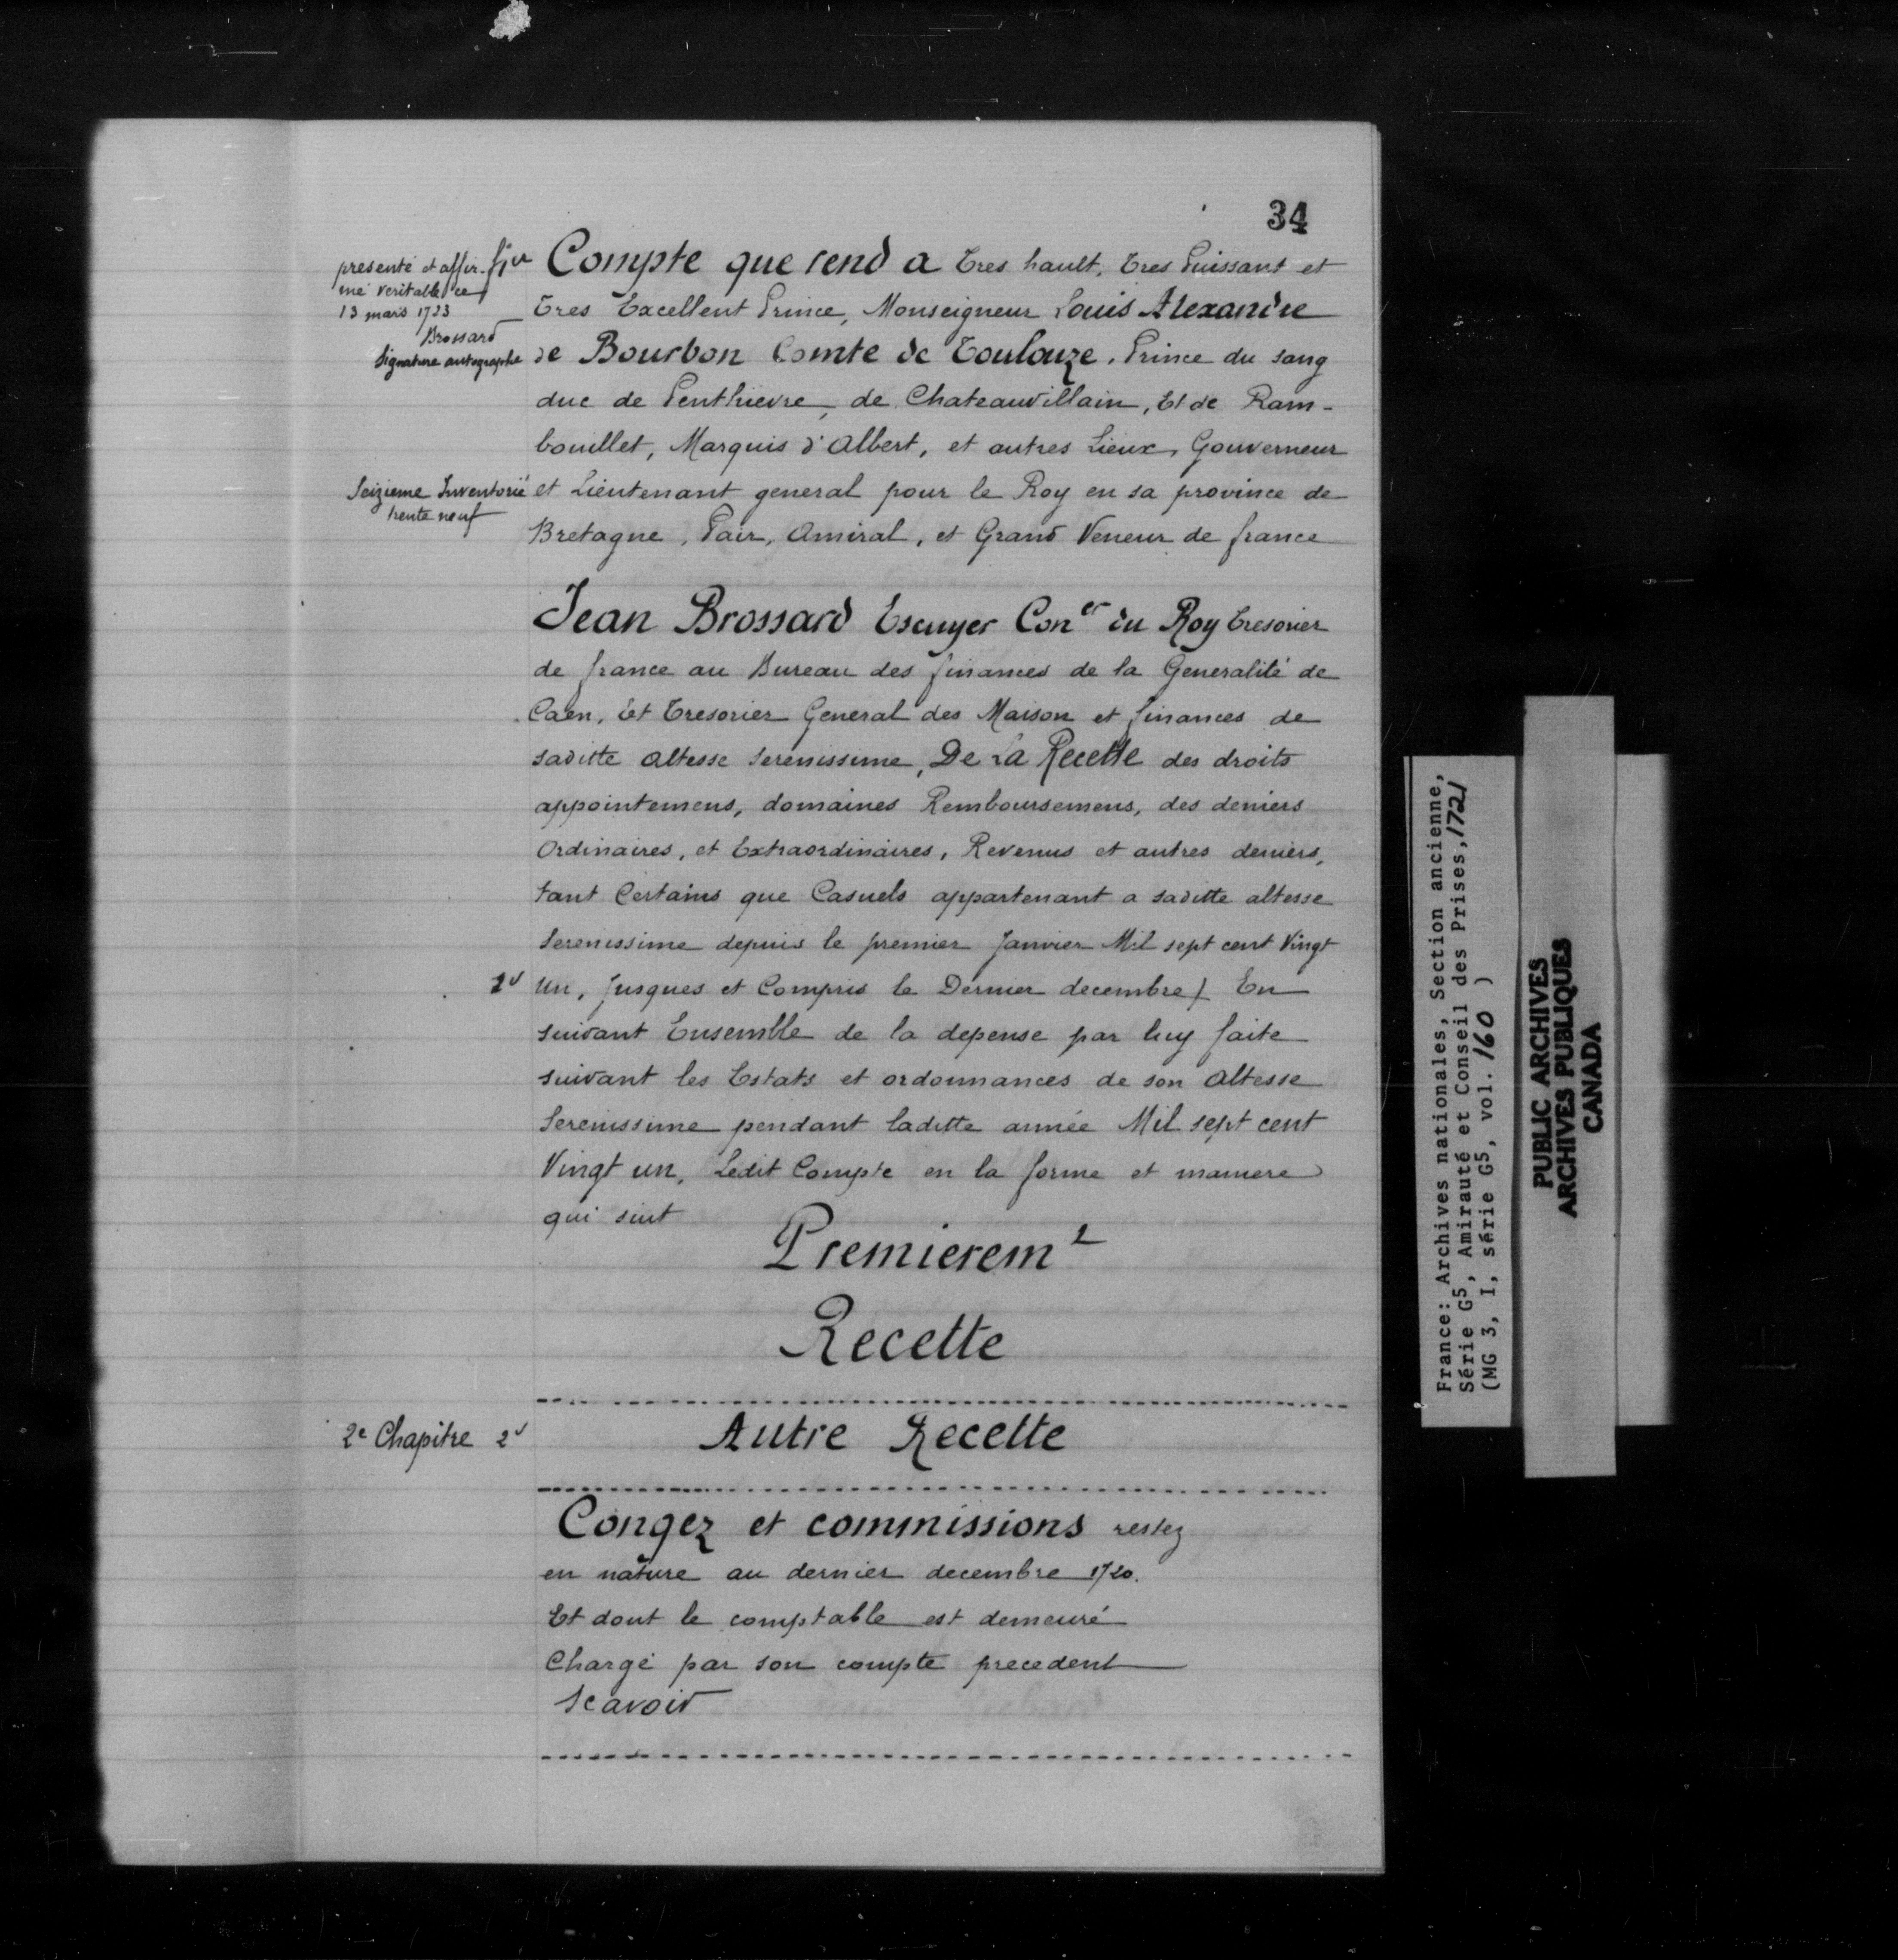 34
presenté et affir-
mé veritable ce
13 mars 1723
Brossard
Signature autographe
Seizieme Inventorié
trente neuf
Compte que rend a Tres hault, Tres Puissant et
Tres Excellent Prince, Monseigneur Louis Alexandre
de Bourbon Comte de Toulouze, Prince du sang
duc de Penthievre, de Chateauvillain, Et de Ram-
bouillet, Marquis d'Albert, et autres Lieux, Gouverneur
et Lieutenant general pour le Roy en sa province de
Bretagne, Pair, Amiral, et Grand Veneur de france
Jean Brossard Escuyer Con.er du Roy Tresorier
de france au Bureau des finances de la Generalité de
Caen, Et Tresorier General des Maison et finances de
saditte Altesse Serenissime, De La Recette des droits
appointemens, domaines Remboursemens, des deniers
Ordinaires, et Extraordinaires, Revenus et autres deniers,
tant Certains que Casuels appartenant a saditte altesse
Serenissime depuis le premier Janvier Mil sept cent Vingt
Un, Jusques et Compris le Dernier decembre En
suivant Ensemble de la depense par luy faite
suivant les Estats et ordonnances de son Altesse
Serenissime pendant laditte année Mil sept cent
Vingt un, Ledit Compte en la forme et maniere
qui suit
Premierem.t
Recette
2e Chapitre 2v
Autre Recette
Congez et commissions restez
en nature au dernier decembre 1720.
Et dont le comptable est demeuré
Chargé par son compte precedent
Scavoir
France: Archives nationales, Section ancienne,
Série G5, Amirauté et Conseil des Prises, 1721
(MG 3, I, série G5, vol. 160 )
PUBLIC ARCHIVES
ARCHIVES PUBLIQUES
CANADA